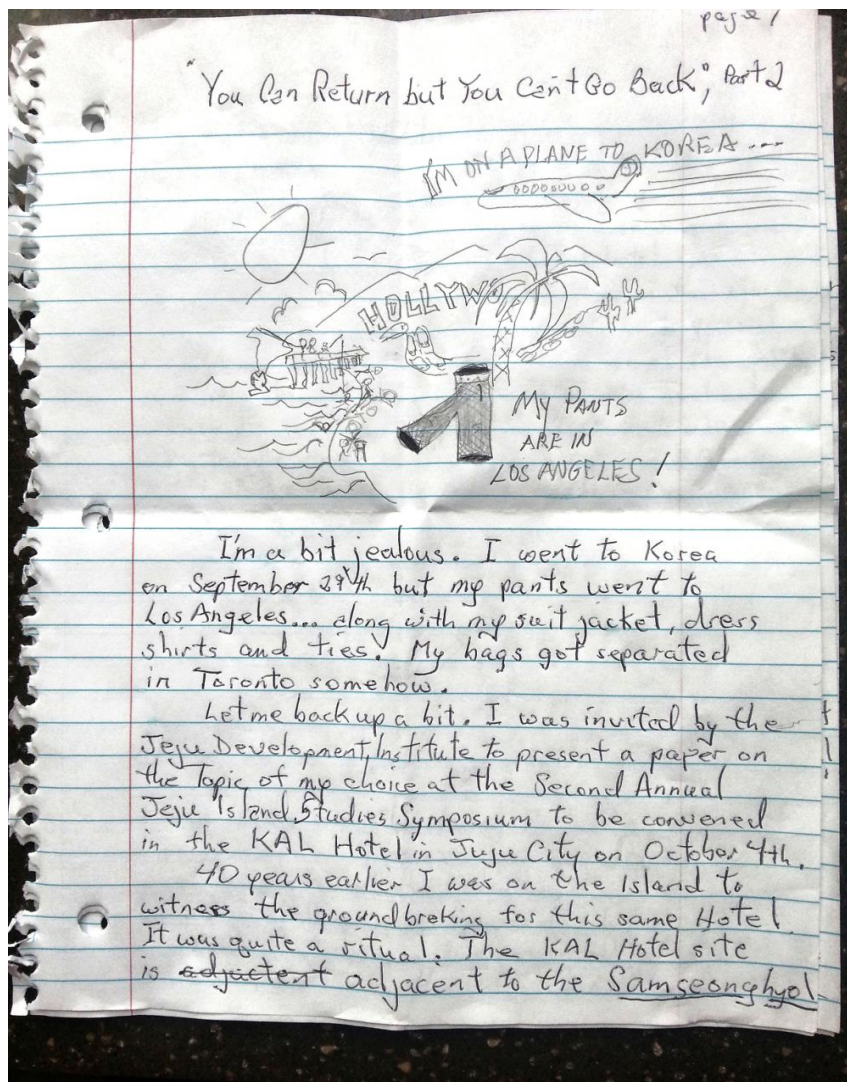 page 1
"You Can Return but You Can't Go Back", Part 2
I'M ON A PLANE TO KOREA ...
HOLLYWO
MY PANTS
ARE IN
LOS ANGELES!
I'm a bit jealous. I went to Korea
on September 29th but my pants went to
Los Angeles... along with my suit jacket, dress
shirts and ties. My bags got separated
in Toronto somehow.
Let me back up a bit. I was invited by the
Jeju Development Institute to present a paper on
the Topic of my choice at the Second Annual
Jeju Island Studies Symposium to be convened
in the KAL Hotel in Juju City on October 4th.
40 years earlier I was on the Island to
witness the groundbreking for this same Hotel.
It was quite a ritual. The KAL Hotel site
is adjuctent adjacent to the Samseonghyol